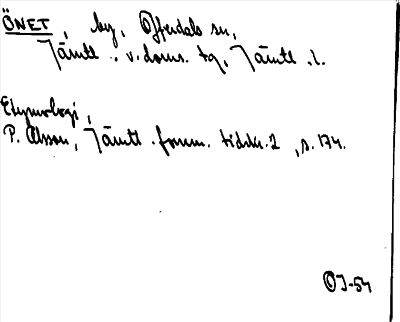 ÖNET, by, Offerdals sn,
Jämtl. v. doms. tg, Jämtl. l.
Etymologi,
P. Olsson, Jämtl. fornm. tidskr. 2, s. 174.
OJ-54